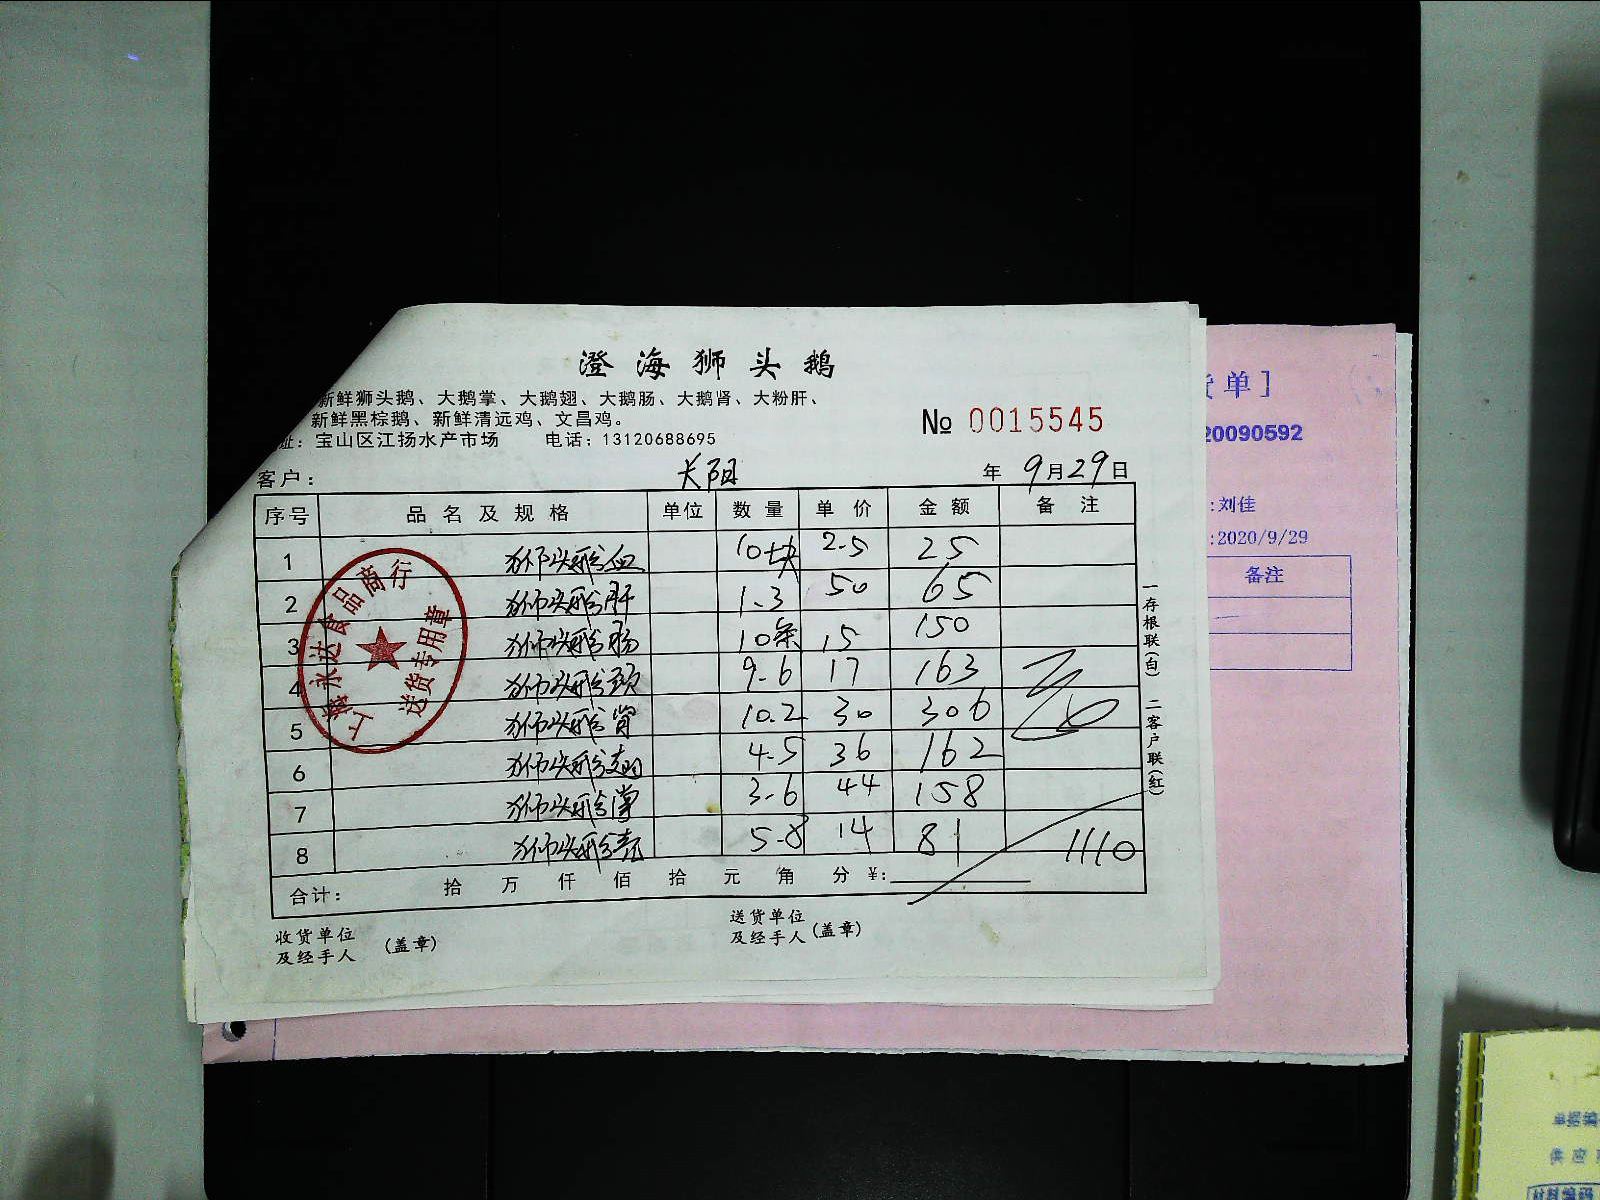 澄海狮头鹅
新鲜狮头鹅、大鹅掌、大鹅翅、大鹅肠、大鹅肾、大粉肝、
新鲜黑棕鹅、新鲜清远鸡、文昌鸡。
址：宝山区江扬水产市场 电话：13120688695
№ 0015545
客户： 长阳 年 9月29日
序号 品名及规格 单位 数量 单价 金额 备注
1 狮头鹅血 10块 2.5 25
2 狮头鹅肝 1.3 50 65
3 狮头鹅肠 10条 15 150
4 狮头鹅头 9.6 17 163
5 狮头鹅肾 10.2 30 306
6 狮头鹅翅 4.5 36 162
7 狮头鹅掌 3.6 44 158
8 狮头鹅壳 5.8 14 81 1110
合计： 拾 万 仟 佰 拾 元 角 分 ¥:
收货单位
及经手人 （盖章）
送货单位
及经手人（盖章）
一存根联（白） 二客户联（红）
上海永达食品商行
送货专用章
货单］
20090592
:刘佳
:2020/9/29
备注
单据编
供应
材料编码